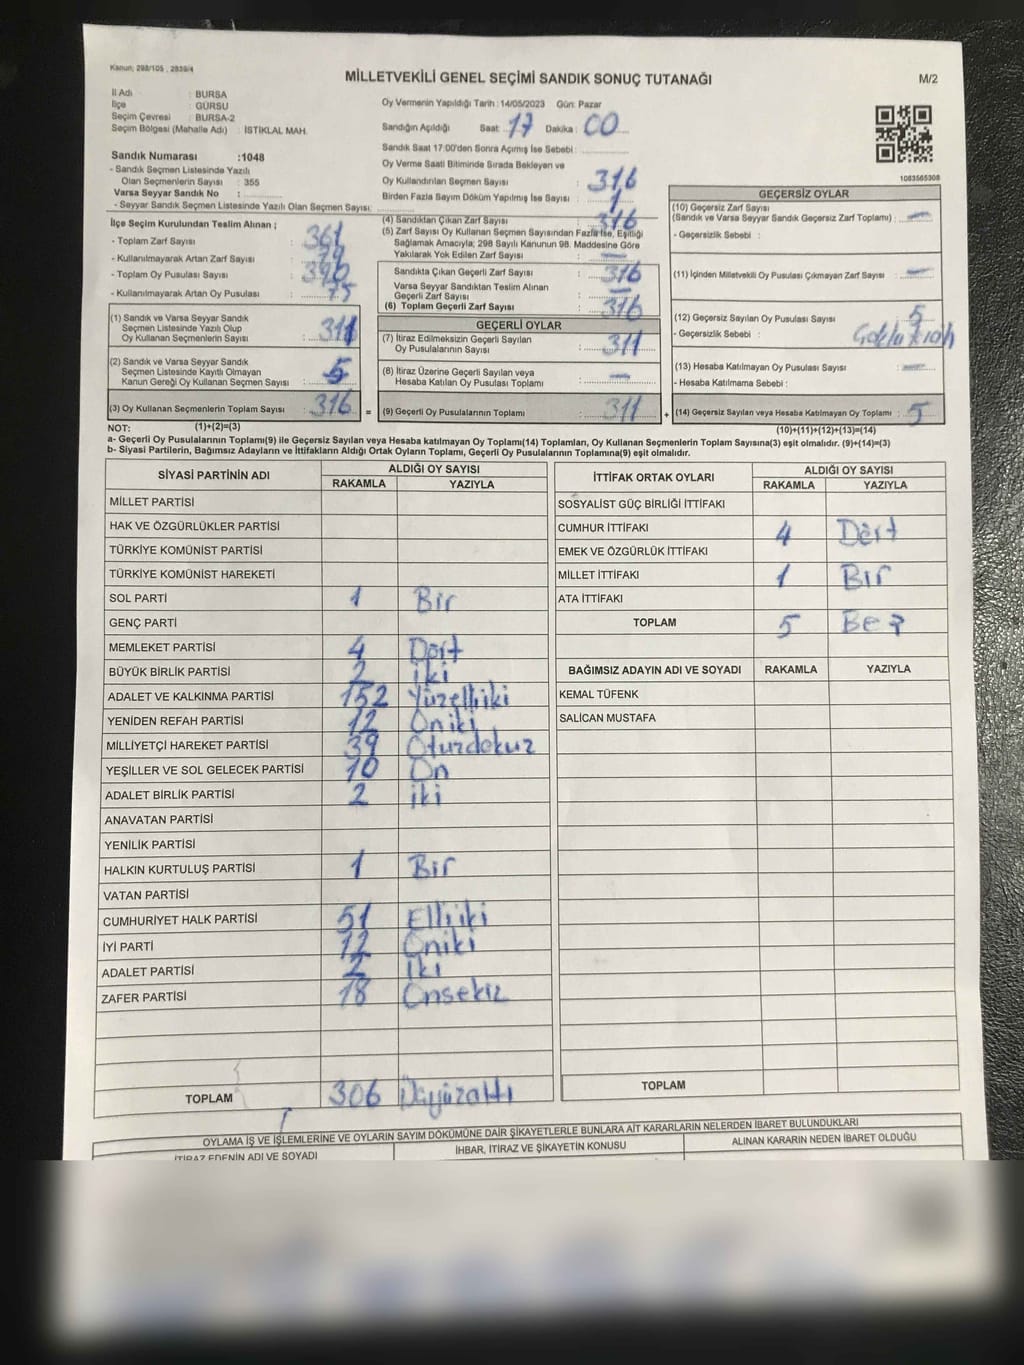 Kanun: 298/105 , 2839/4
MİLLETVEKİLİ GENEL SEÇİMİ SANDIK SONUÇ TUTANAĞI
M/2
İl Adı : BURSA
İlçe : GÜRSU
Seçim Çevresi : BURSA-2
Seçim Bölgesi (Mahalle Adı) : İSTİKLAL MAH.
Sandık Numarası :1048
- Sandık Seçmen Listesinde Yazılı
Olan Seçmenlerin Sayısı : 355
Varsa Seyyar Sandık No :
- Seyyar Sandık Seçmen Listesinde Yazılı Olan Seçmen Sayısı:
Oy Vermenin Yapıldığı Tarih : 14/05/2023 Gün: Pazar
Sandığın Açıldığı Saat: 17 Dakika : 00
Sandık Saat 17:00'den Sonra Açımış İse Sebebi :
Oy Verme Saati Bitiminde Sırada Bekleyen ve
Oy Kullandırılan Seçmen Sayısı : 316
Birden Fazla Sayım Döküm Yapılmış İse Sayısı : 1
1083565308
İlçe Seçim Kurulundan Teslim Alınan ;
- Toplam Zarf Sayısı : 361
- Kullanılmayarak Artan Zarf Sayısı :
- Toplam Oy Pusulası Sayısı : 390
- Kullanılmayarak Artan Oy Pusulası : 75
(1) Sandık ve Varsa Seyyar Sandık
Seçmen Listesinde Yazılı Olup
Oy Kullanan Seçmenlerin Sayısı : 311
(2) Sandık ve Varsa Seyyar Sandık
Seçmen Listesinde Kayıtlı Olmayan
Kanun Gereği Oy Kullanan Seçmen Sayısı : 5
(3) Oy Kullanan Seçmenlerin Toplam Sayısı : 316 =
(4) Sandıktan Çıkan Zarf Sayısı : 316
(5) Zarf Sayısı Oy Kullanan Seçmen Sayısından Fazla İse, Eşitliği
Sağlamak Amacıyla; 298 Sayılı Kanunun 98. Maddesine Göre
Yakılarak Yok Edilen Zarf Sayısı : —
Sandıkta Çıkan Geçerli Zarf Sayısı : 316
Varsa Seyyar Sandıktan Teslim Alınan
Geçerli Zarf Sayısı : —
(6) Toplam Geçerli Zarf Sayısı : 316
GEÇERLİ OYLAR
(7) İtiraz Edilmeksizin Geçerli Sayılan
Oy Pusulalarının Sayısı : 311
(8) İtiraz Üzerine Geçerli Sayılan veya
Hesaba Katılan Oy Pusulası Toplamı : —
(9) Geçerli Oy Pusulalarının Toplamı : 311 +
GEÇERSİZ OYLAR
(10) Geçersiz Zarf Sayısı
(Sandık ve Varsa Seyyar Sandık Geçersiz Zarf Toplamı) : —
- Geçersizlik Sebebi :
(11) İçinden Milletvekili Oy Pusulası Çıkmayan Zarf Sayısı : —
(12) Geçersiz Sayılan Oy Pusulası Sayısı : 5
- Geçersizlik Sebebi :
(13) Hesaba Katılmayan Oy Pusulası Sayısı : —
- Hesaba Katılmama Sebebi :
(14) Geçersiz Sayılan veya Hesaba Katılmayan Oy Toplamı : 5
NOT: (1)+(2)=(3)
(10)+(11)+(12)+(13)=(14)
a- Geçerli Oy Pusulalarının Toplamı(9) ile Geçersiz Sayılan veya Hesaba katılmayan Oy Toplamı(14) Toplamları, Oy Kullanan Seçmenlerin Toplam Sayısına(3) eşit olmalıdır. (9)+(14)=(3)
b- Siyasi Partilerin, Bağımsız Adayların ve İttifakların Aldığı Ortak Oyların Toplamı, Geçerli Oy Pusulalarının Toplamına(9) eşit olmalıdır.
SİYASİ PARTİNİN ADI
ALDIĞI OY SAYISI
RAKAMLA YAZIYLA
MİLLET PARTİSİ
HAK VE ÖZGÜRLÜKLER PARTİSİ
TÜRKİYE KOMÜNİST PARTİSİ
TÜRKİYE KOMÜNİST HAREKETİ
SOL PARTİ 1 Bir
GENÇ PARTİ
MEMLEKET PARTİSİ 4 Dört
BÜYÜK BİRLİK PARTİSİ 2 iki
ADALET VE KALKINMA PARTİSİ 152 Yüzelliiki
YENİDEN REFAH PARTİSİ 12 Oniki
MİLLİYETÇİ HAREKET PARTİSİ 39 Otuzdokuz
YEŞİLLER VE SOL GELECEK PARTİSİ 10 On
ADALET BİRLİK PARTİSİ 2 iki
ANAVATAN PARTİSİ
YENİLİK PARTİSİ
HALKIN KURTULUŞ PARTİSİ 1 Bir
VATAN PARTİSİ
CUMHURİYET HALK PARTİSİ 51 Elliiki
İYİ PARTİ 12 Oniki
ADALET PARTİSİ 2 iki
ZAFER PARTİSİ 18 Onsekiz
TOPLAM 306
İTTİFAK ORTAK OYLARI
ALDIĞI OY SAYISI
RAKAMLA YAZIYLA
SOSYALİST GÜÇ BİRLİĞİ İTTİFAKI
CUMHUR İTTİFAKI 4 Dört
EMEK VE ÖZGÜRLÜK İTTİFAKI
MİLLET İTTİFAKI 1 Bir
ATA İTTİFAKI
TOPLAM 5 Beş
BAĞIMSIZ ADAYIN ADI VE SOYADI RAKAMLA YAZIYLA
KEMAL TÜFENK
SALİCAN MUSTAFA
TOPLAM
OYLAMA İŞ VE İŞLEMLERİNE VE OYLARIN SAYIM DÖKÜMÜNE DAİR ŞİKAYETLERLE BUNLARA AİT KARARLARIN NELERDEN İBARET BULUNDUKLARI
İTİRAZ EDENİN ADI VE SOYADI
İHBAR, İTİRAZ VE ŞİKAYETİN KONUSU
ALINAN KARARIN NEDEN İBARET OLDUĞU